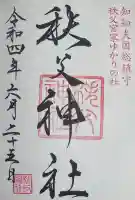 知知夫国総鎮守
秩父宮家ゆかりの社
秩父神社
令和四年六月二十五日